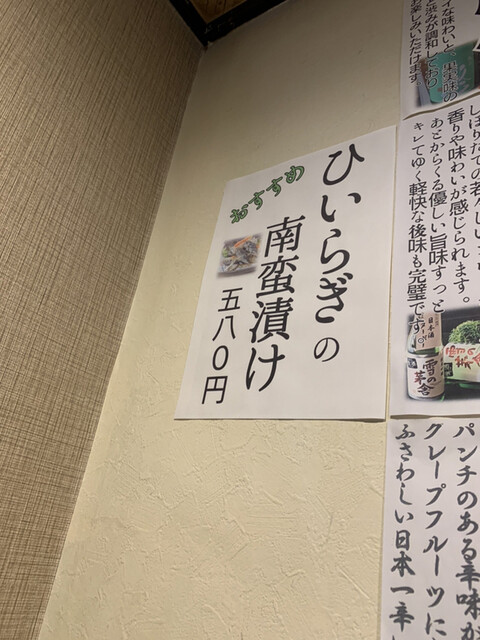 ひいらぎの
南蛮漬け
五八〇円
おすすめ
と渋みが調和しており
お楽しみいただけます
香りや味わいが感じられます。
あとからくる優しい旨味すっと
キレてゆく軽快な後味も完璧です
日本酒
雪の茅舎
パンチのある辛味が
グレープフルーツに
ふさわしい日本一辛